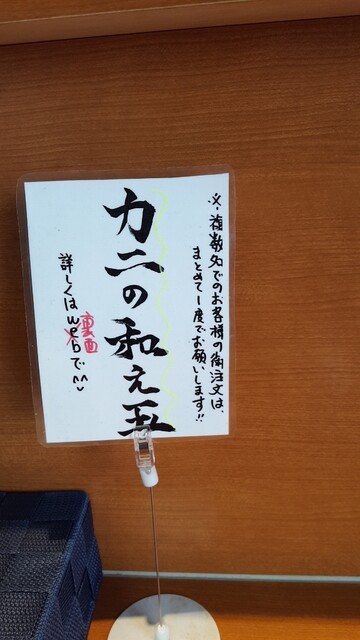 ※複数名でのお客様の御注文は、
まとめて1度でお願いします!!
カニの和え玉
裏面
詳しくはwebで^^